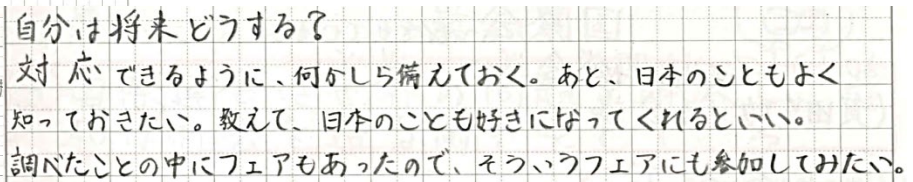 自分は将来どうする？
対応できるように、何かしら備えておく。あと、日本のこともよく
知っておきたい。教えて、日本のことも好きになってくれるといい。
調べたことの中にフェアもあったので、そういうフェアにも参加してみたい。